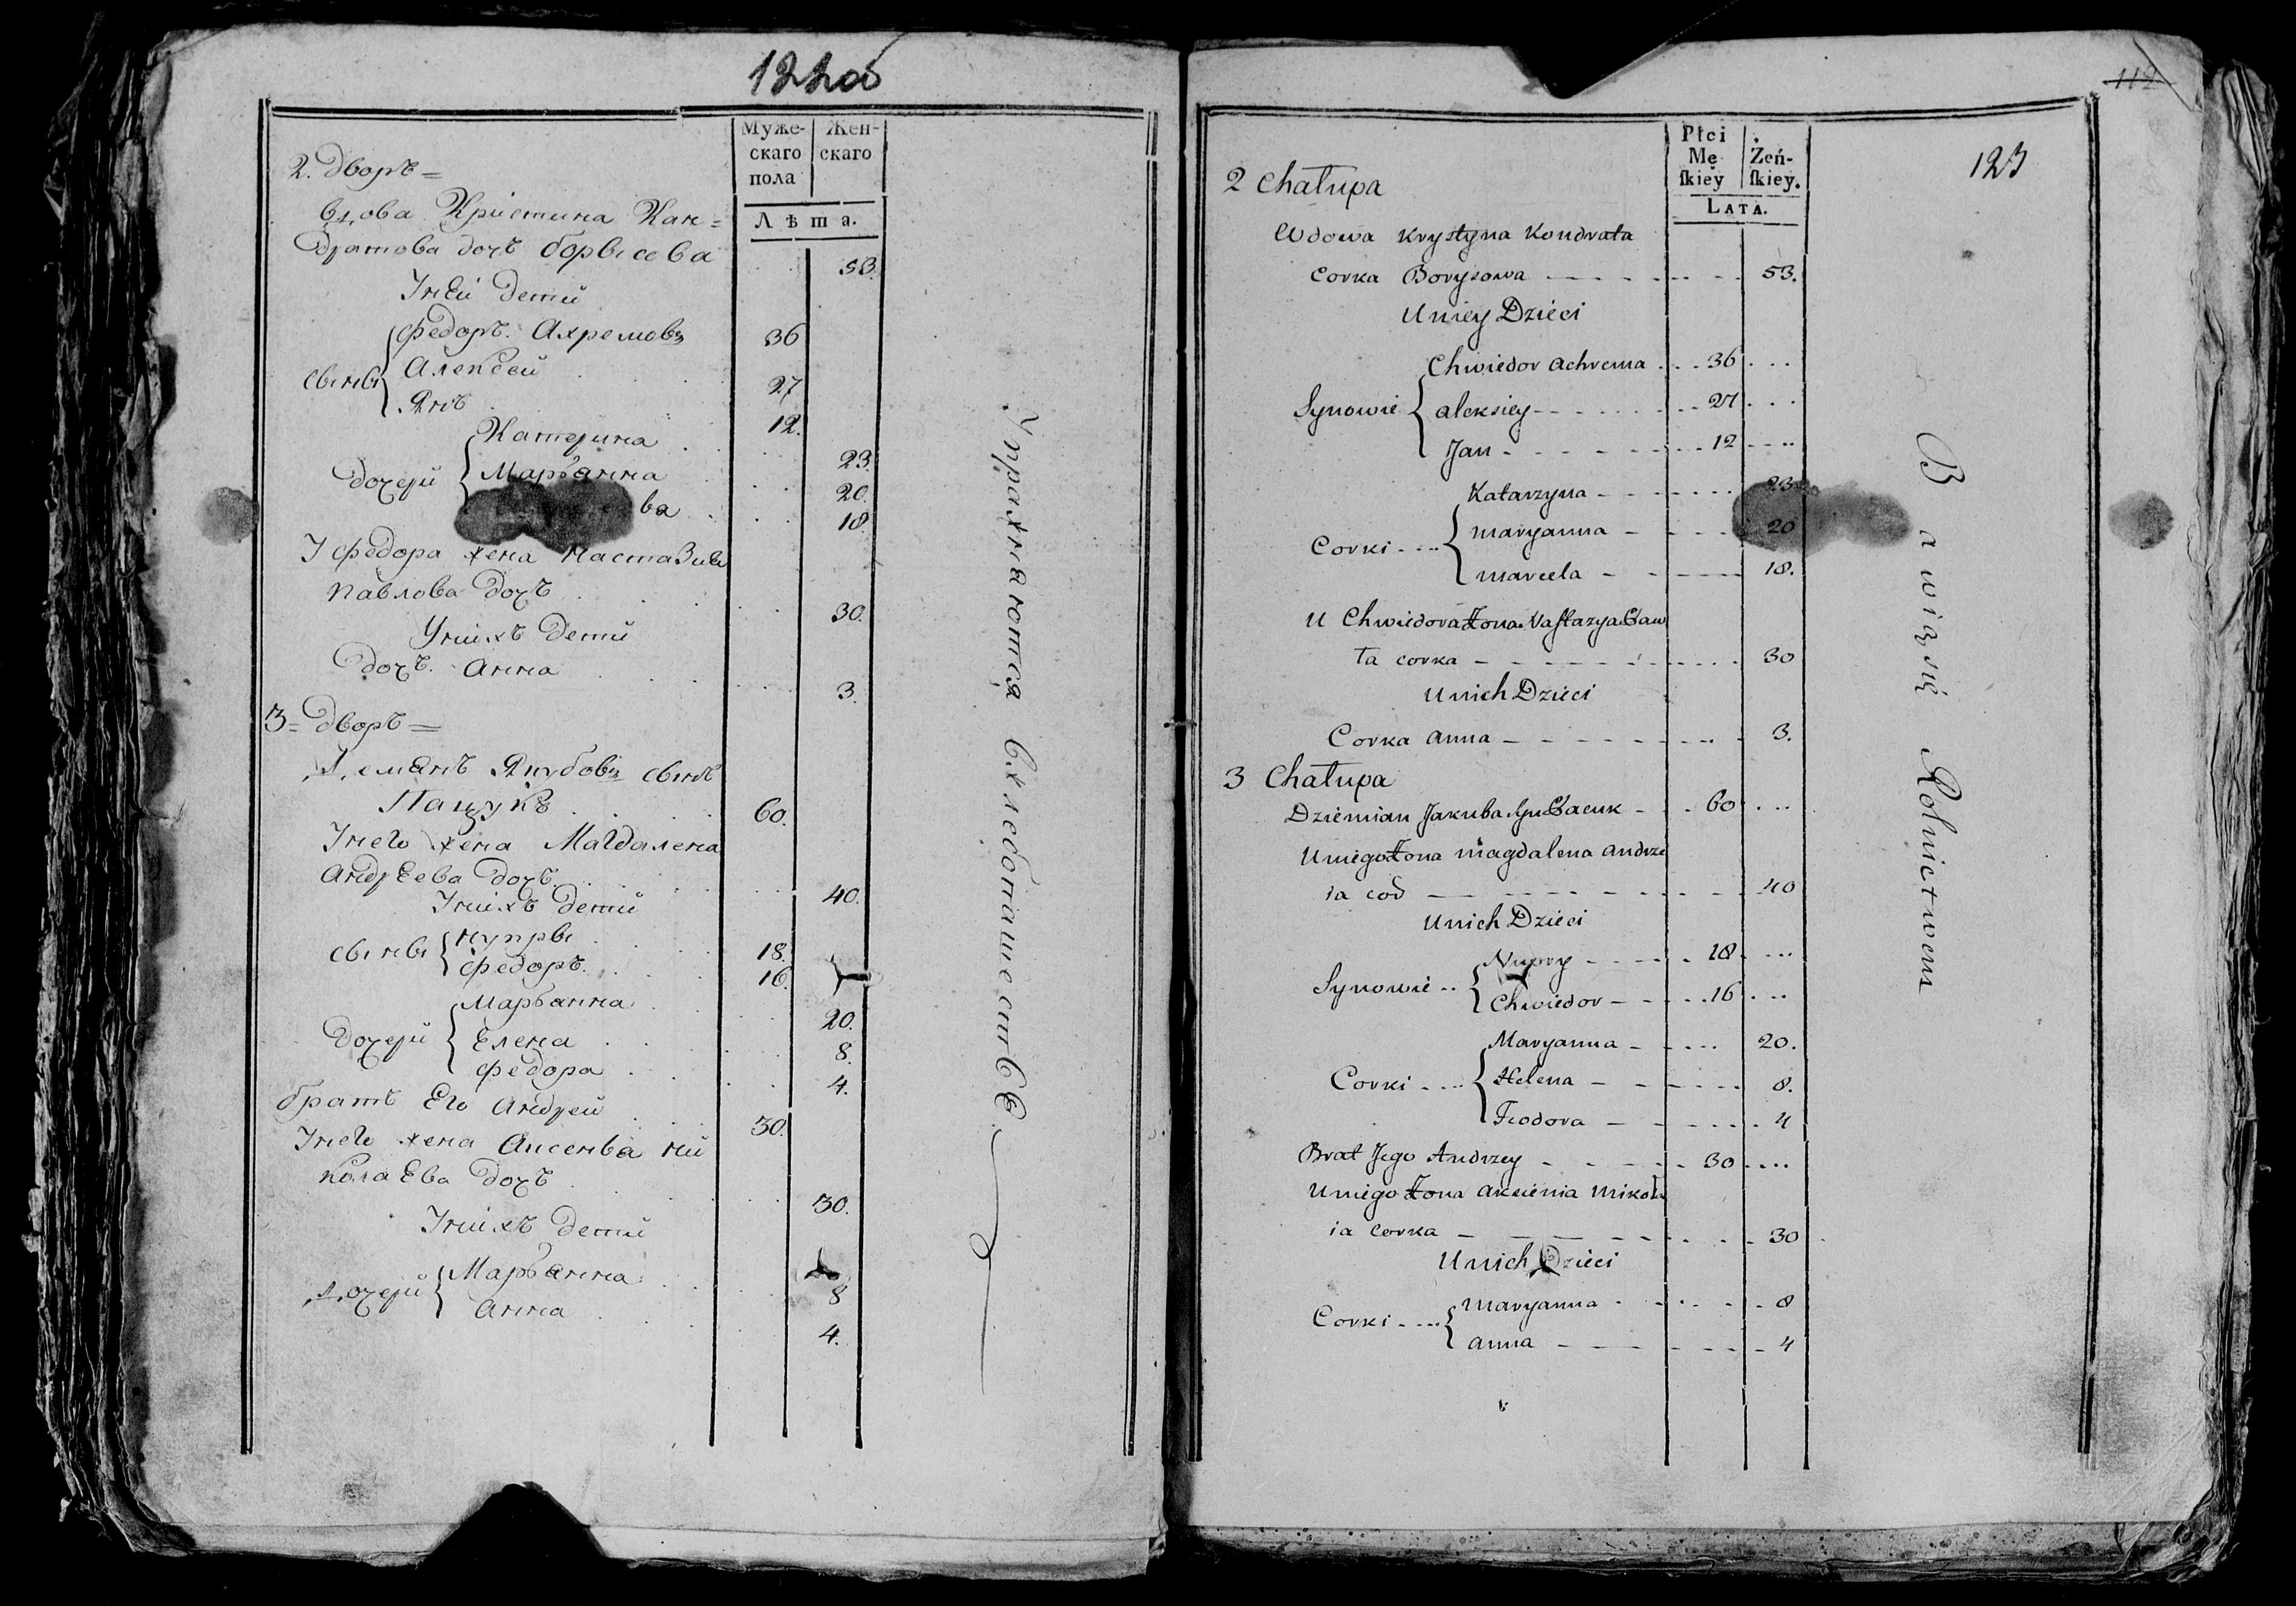 122об
Муже-
скаго
пола
Жен-
скаго
Лѣта.
2. Дворъ =
Вдова Кристина Кан=
дратова дочь Борысева . . 53.
Унеи Детей
Федоръ. Ахремовъ 36
Сыны Алексей . . . 27
Янъ . 12.
Катерина . . . 23.
Дочери Марьянна . . 20.
ва . . . 18
У Федора жена Настазия
Павлова Дочь . . . . 30.
Уних Детей
Дочь. Анна . . . . 3.
3= Дворъ =
Демянъ Якубовъ сынъ
Пацукъ . . . 60.
Унего жена Магдалена
Андреева Дочь . . . . 40.
Унихъ Детей
Сыны Нупры . . . 18.
Федоръ. . . 16.
Марьянна . . . 20.
Дочери Елена . . . 8.
Федора . . . 4.
Братъ Его Андрей . . . 30.
Унего жена Аксенья Ни
колаева Дочь . . . . 30.
Унихъ Детей
Дочери Марьянна . . . 8
Анна . . . . 4.
Упражняются вхлебопашестве.
112
123
Płci
Mę
skiey
Żeń-
skiey.
LATA.
2 Chałupa
Wdowa Krystyna Kondrata
Corka Borysowa - - - - - - 53.
Uniey Dzieci
Chwiedor Achrema . . . 36 . . .
Synowie Aleksiey - - - - - - 27 . . .
Jan - - - - - - - 12 - - ..
Katarzyna - - - - - - 23
Corki - - .. Maryanna - - - - 20
Marcela - - - - - - 18.
U Chwiedora Żona Nastazya Paw
ła corka - - - - - - - - - - 30
Unich Dzieci
Corka Anna - - - - - - - - 3.
3 Chałupa
Dziemian Jakuba Syn Pacuk - - . 60 . . .
Uniego Żona Magdalena Andrze
ia cod - - - - - - - - - - 40
Unich Dzieci
Nupry - - - - - . 18 . ...
Synowie .. Chwiedor - - - . . 16 . . .
Maryanna - - - - . 20.
Corki . ... Helena - - - - - - 8.
Teodora - - - - - . 4
Brat Jego Andrzey - - - - - 30 - ...
Uniego Żona Aksienia Mikoła
ia Corka - - - - - - - . - 30
Unich Dzieci
Maryanna - - . - . - 8
Corki - ... Anna - - - - - - - - 4
Bawią się Rolnictwem